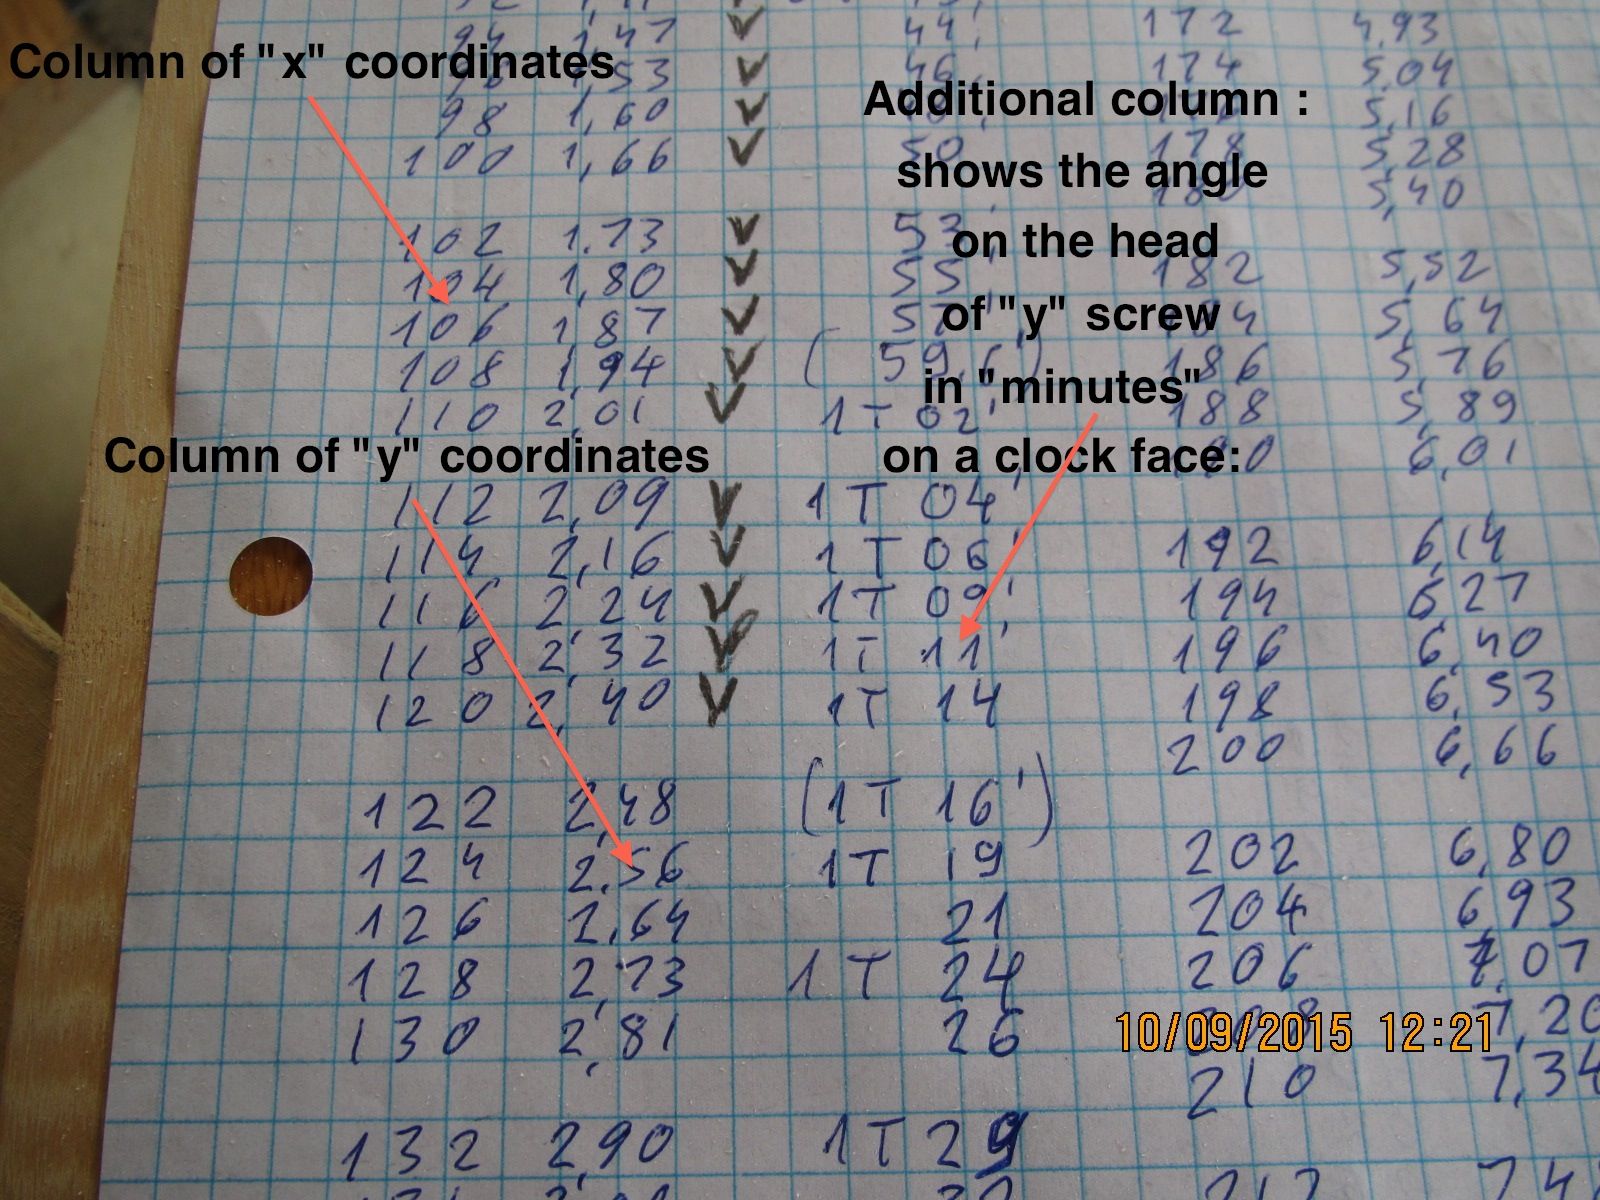 Column of "x" coordinates
Column of "y" coordinates
Additional column :
shows the angle
on the head
of "y" screw
in "minutes"
on a clock face:
98 1,60
100 1,66
102 1,73
104 1,80
106 1,87
108 1,94 ( 59,6')
110 2,01 1T 02'
112 2,09 1T 04'
114 2,16 1T 06'
116 2,24 1T 09'
118 2,32 1T 11'
120 2,40 1T 14
122 2,48 (1T 16')
124 2,56 1T 19
126 2,64 21
128 2,73 1T 24
130 2,81 26
132 2,90 1T 29
44'
46'
50'
53'
55'
57'
172 4,93
174 5,04
5,16
178 5,28
180 5,40
182 5,52
184 5,64
186 5,76
188 5,89
190 6,01
192 6,14
194 6,27
196 6,40
198 6,53
200 6,66
202 6,80
204 6,93
206 7,07
208 7,20
210 7,34
10/09/2015 12:21